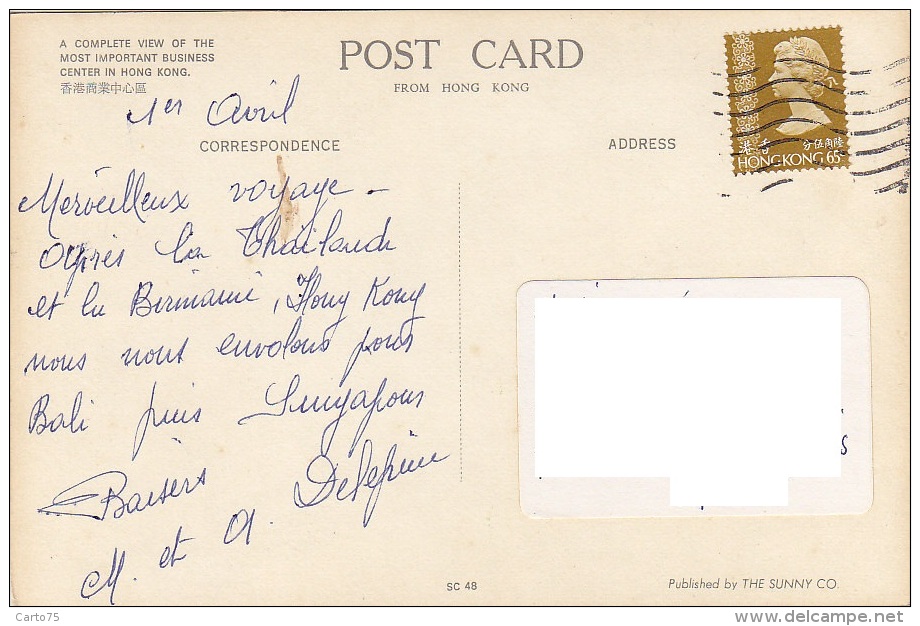 A COMPLETE VIEW OF THE
MOST IMPORTANT BUSINESS
CENTER IN HONG KONG.
香港商業中心區
POST CARD
FROM HONG KONG
港香 分伍角陸
HONG KONG 65¢
1er Avril
CORRESPONDENCE
ADDRESS
Merveilleux voyage -
Après la Thaïlande
et la Birmanie, Hong Kong
nous nous envolons pour
Bali puis Singapour
Baisers
M. et A. Delépine
s
SC 48
Published by THE SUNNY CO.
Carto75
www.delcampe.net